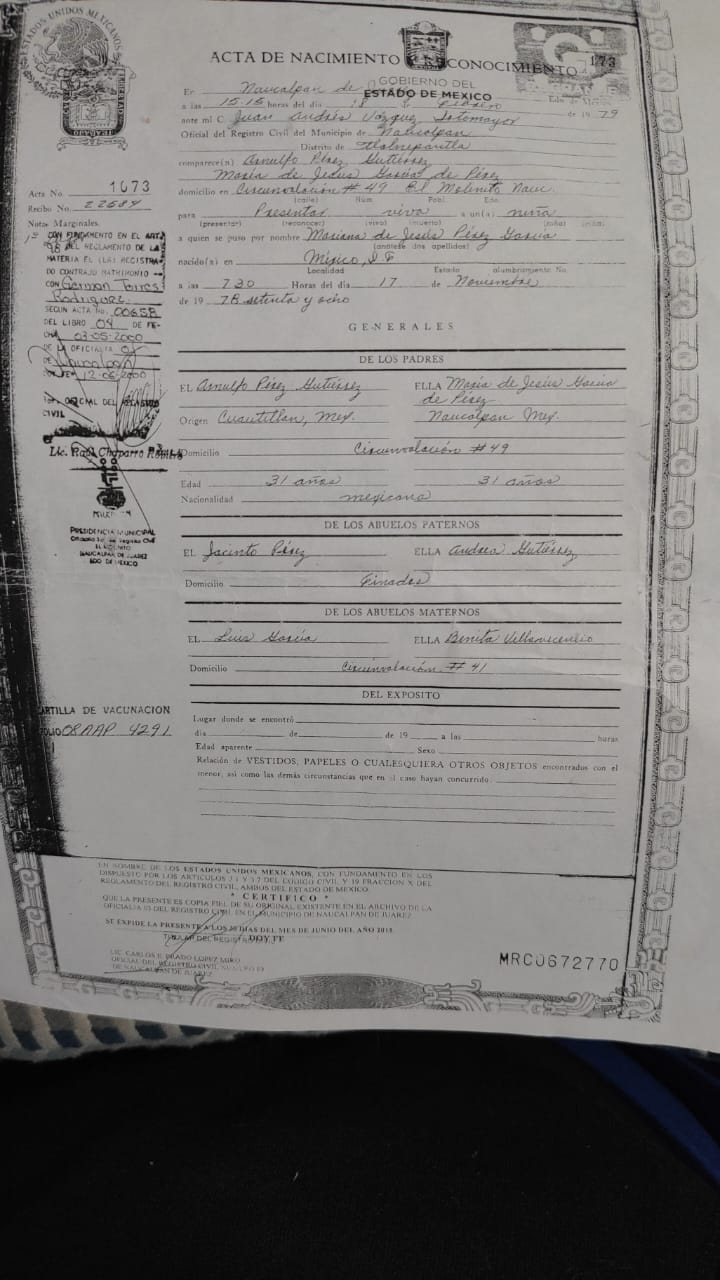 ESTADOS UNIDOS MEXICANOS
ACTA DE NACIMIENTO RECONOCIMIENTO 173
GOBIERNO DEL
ESTADO DE MEXICO
En Naucalpan de
a las 15.15 horas del día de 19 79
ante mi C Juan Andrés Vázquez Sotomayor
Oficial del Registro Civil del Municipio de Naucalpan
Distrito de Tlalnepantla
comparece(n) Arnulfo Pérez Gutiérrez
María de Jesús García de Pérez
domicilio en Circunvalación # 49 El Molinito Nau.
(calle) Núm Pobl. Edo.
para Presentar viva a un(a) niña
(presentar) (reconocer) (vivo) (muerto) (niña) (niño)
a quien se puso por nombre Mariana de Jesús Pérez García
(anótese dos apellidos)
nacido(a) en México, D.F.
Localidad Estado alumbramiento No.
a las 7.30 Horas del día 17 de Noviembre
de 19 78 setenta y ocho
Acta No. 1673
Recibo No. 22684
Notas Marginales.
CON FUNDAMENTO EN EL ART.
98 DEL REGLAMENTO DE LA
MATERIA EL (LA) REGISTRA-
DO CONTRAJO MATRIMONIO
CON German Torres
Rodriguez
SEGUN ACTA No. 00658
DEL LIBRO 04 DE FE-
CHA 03-05-2000
DE LA OFICIALIA 01
DE Naucalpan
12-06-2000
OFICIAL DEL REGISTRO
CIVIL
Lic. Raúl Chaparro Romero
PRESIDENCIA MUNICIPAL
EL MOLINITO
NAUCALPAN DE JUAREZ
EDO DE MEXICO
GENERALES
DE LOS PADRES
EL Arnulfo Pérez Gutiérrez ELLA María de Jesús García
de Pérez
Origen Cuautitlan, Mex. Naucalpan Mex.
Domicilio Circunvalación # 49
Edad 31 años 31 años
Nacionalidad mexicana
DE LOS ABUELOS PATERNOS
EL Jacinto Pérez ELLA Andrea Gutiérrez
Domicilio Finados
DE LOS ABUELOS MATERNOS
EL Luis García ELLA Benita Villavicencio
Domicilio Circunvalación # 41
DEL EXPOSITO
CARTILLA DE VACUNACION
FOLIO 08AAP 4291
Lugar donde se encontró
día de de 19 a las horas
Edad aparente Sexo
Relación de VESTIDOS, PAPELES O CUALESQUIERA OTROS OBJETOS encontrados con el
menor, así como las demás circunstancias que en el caso hayan concurrido:
EN NOMBRE DE LOS ESTADOS UNIDOS MEXICANOS, CON FUNDAMENTO EN LOS
DISPUESTO POR LOS ARTICULOS 3.1 Y 3.7 DEL CODIGO CIVIL Y 19 FRACCION X DEL
REGLAMENTO DEL REGISTRO CIVIL, AMBOS DEL ESTADO DE MEXICO.
* CERTIFICO *
QUE LA PRESENTE ES COPIA FIEL DE SU ORIGINAL EXISTENTE EN EL ARCHIVO DE LA
OFICIALIA 03 DEL REGISTRO CIVIL EN EL MUNICIPIO DE NAUCALPAN DE JUAREZ
SE EXPIDE LA PRESENTE A LOS DIAS DEL MES DE JUNIO DEL AÑO
TITULAR DEL REGISTRO DOY FE
LIC CARLOS E. PRADO LOPEZ MIRO
OFICIAL DEL REGISTRO CIVIL NUMERO 03
DE NAUCALPAN DE JUAREZ
MRC0672770